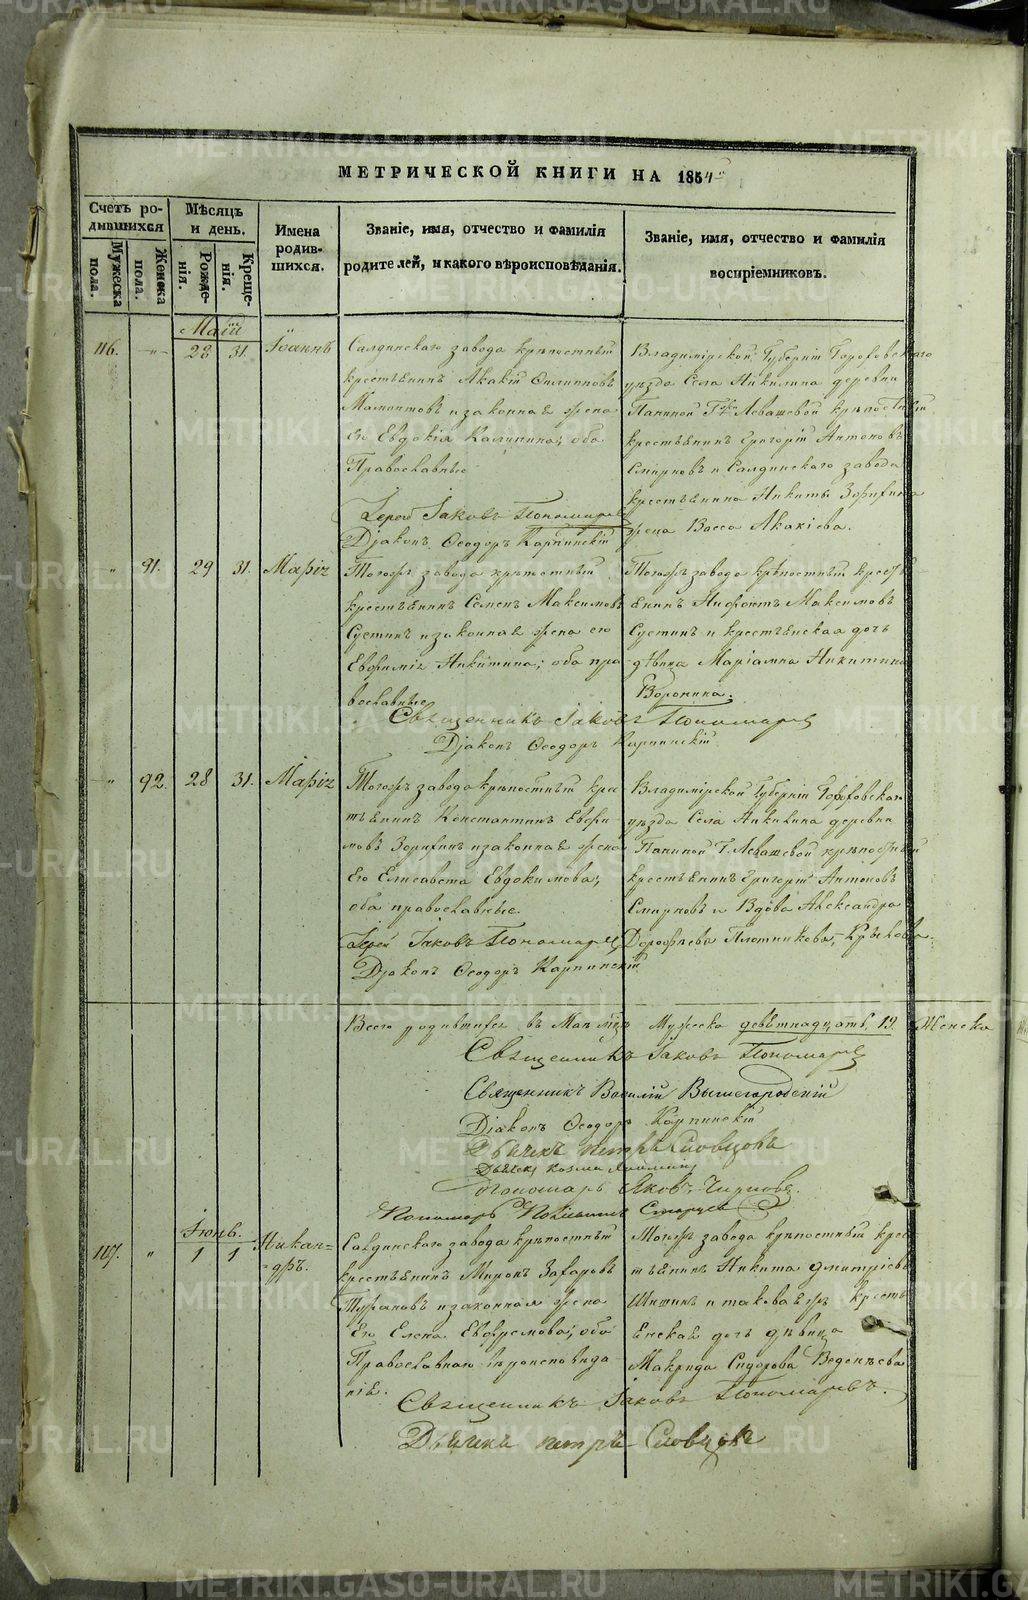 МЕТРИЧЕСКОЙ КНИГИ НА 1854
Счетъ ро-
дившихся
Мужеска
пола.
Женска
пола.
Мѣсяцъ
и день.
Рожде-
нія.
Креще-
нія.
Имена
родив-
шихся.
Званіе, имя, отчество и фамилія
родителей, и какого вѣроисповѣданія.
Званіе, имя, отчество и фамилія
воспріемниковъ.
Маій
116. 28 31. Іоаннъ
Салдинскаго завода крѣпостный
крестьянинъ Акакій Филипповъ
Мамонтовъ и законная жена
его Евдокія Калинина; оба
Православные
Іерей Іаковъ Пономаревъ
Діаконъ Ѳеодоръ Карпинскій
Владимірской Губерніи Гороховскаго
уѣзда Села Никилина деревни
Паниной Г-жи Левашевой крѣпостный
крестьянинъ Григорій Антоновъ
Смирновъ и Салдинскаго завода
крестьянина Никиты Зорихина
жена Васса Акакіева.
91. 29 31. Марія
Тогожъ завода крѣпостный
крестьянинъ Семенъ Максимовъ
Сустинъ и законная жена его
Евфимія Никитина; оба пра
вославные
Тогожъ завода крѣпостный крест
янинъ Нифонтъ Максимовъ
Сустинъ и крестьянская дочь
дѣвица Маріамна Никитина
Воронина.
Священникъ Іаковъ Пономаревъ
Діаконъ Ѳеодоръ Карпинскій
92. 28 31. Марія
Тогожъ завода крѣпостный крес
тьянинъ Константинъ Евфи
мовъ Зорихинъ и законная жена
его Елисавета Евдокимова;
оба православные.
Іерей Іаковъ Пономаревъ
Діаконъ Ѳеодоръ Карпинскій
Владимірской Губерніи Гороховскаго
уѣзда Села Никилина деревни
Паниной Г. Левашевой крѣпостный
крестьянинъ Григорій Антоновъ
Смирновъ и Вдова Александра
Дорофѣева Плотникова
Всего родившихся въ Маѣ мцѣ Мужеска девятнадцать 19 Женска
Священникъ Іаковъ Пономаревъ
Священникъ Василій Вышегородскій
Діаконъ Ѳеодоръ Карпинскій
Дьячекъ Петръ Словцовъ
Дьячекъ Козма
Пономарь Яковъ
Пономарь
Іюнь.
117. 1 1 Никан=
=дръ.
Салдинскаго завода крѣпостный
крестьянинъ Миронъ Захаровъ
Турановъ и законная жена
его Елена Евфремова; оба
Православнаго вѣроисповѣда
нія.
Тогожъ завода крѣпостный крес
тьянинъ Никита Дмитріевъ
Шишинъ и таковая жъ кресть
янская дочь дѣвица
Макрида Сидорова Веденѣева
Священникъ Іаковъ Пономаревъ.
Дьячекъ Петръ Словцовъ
METRIKI.GASO-URAL.RU